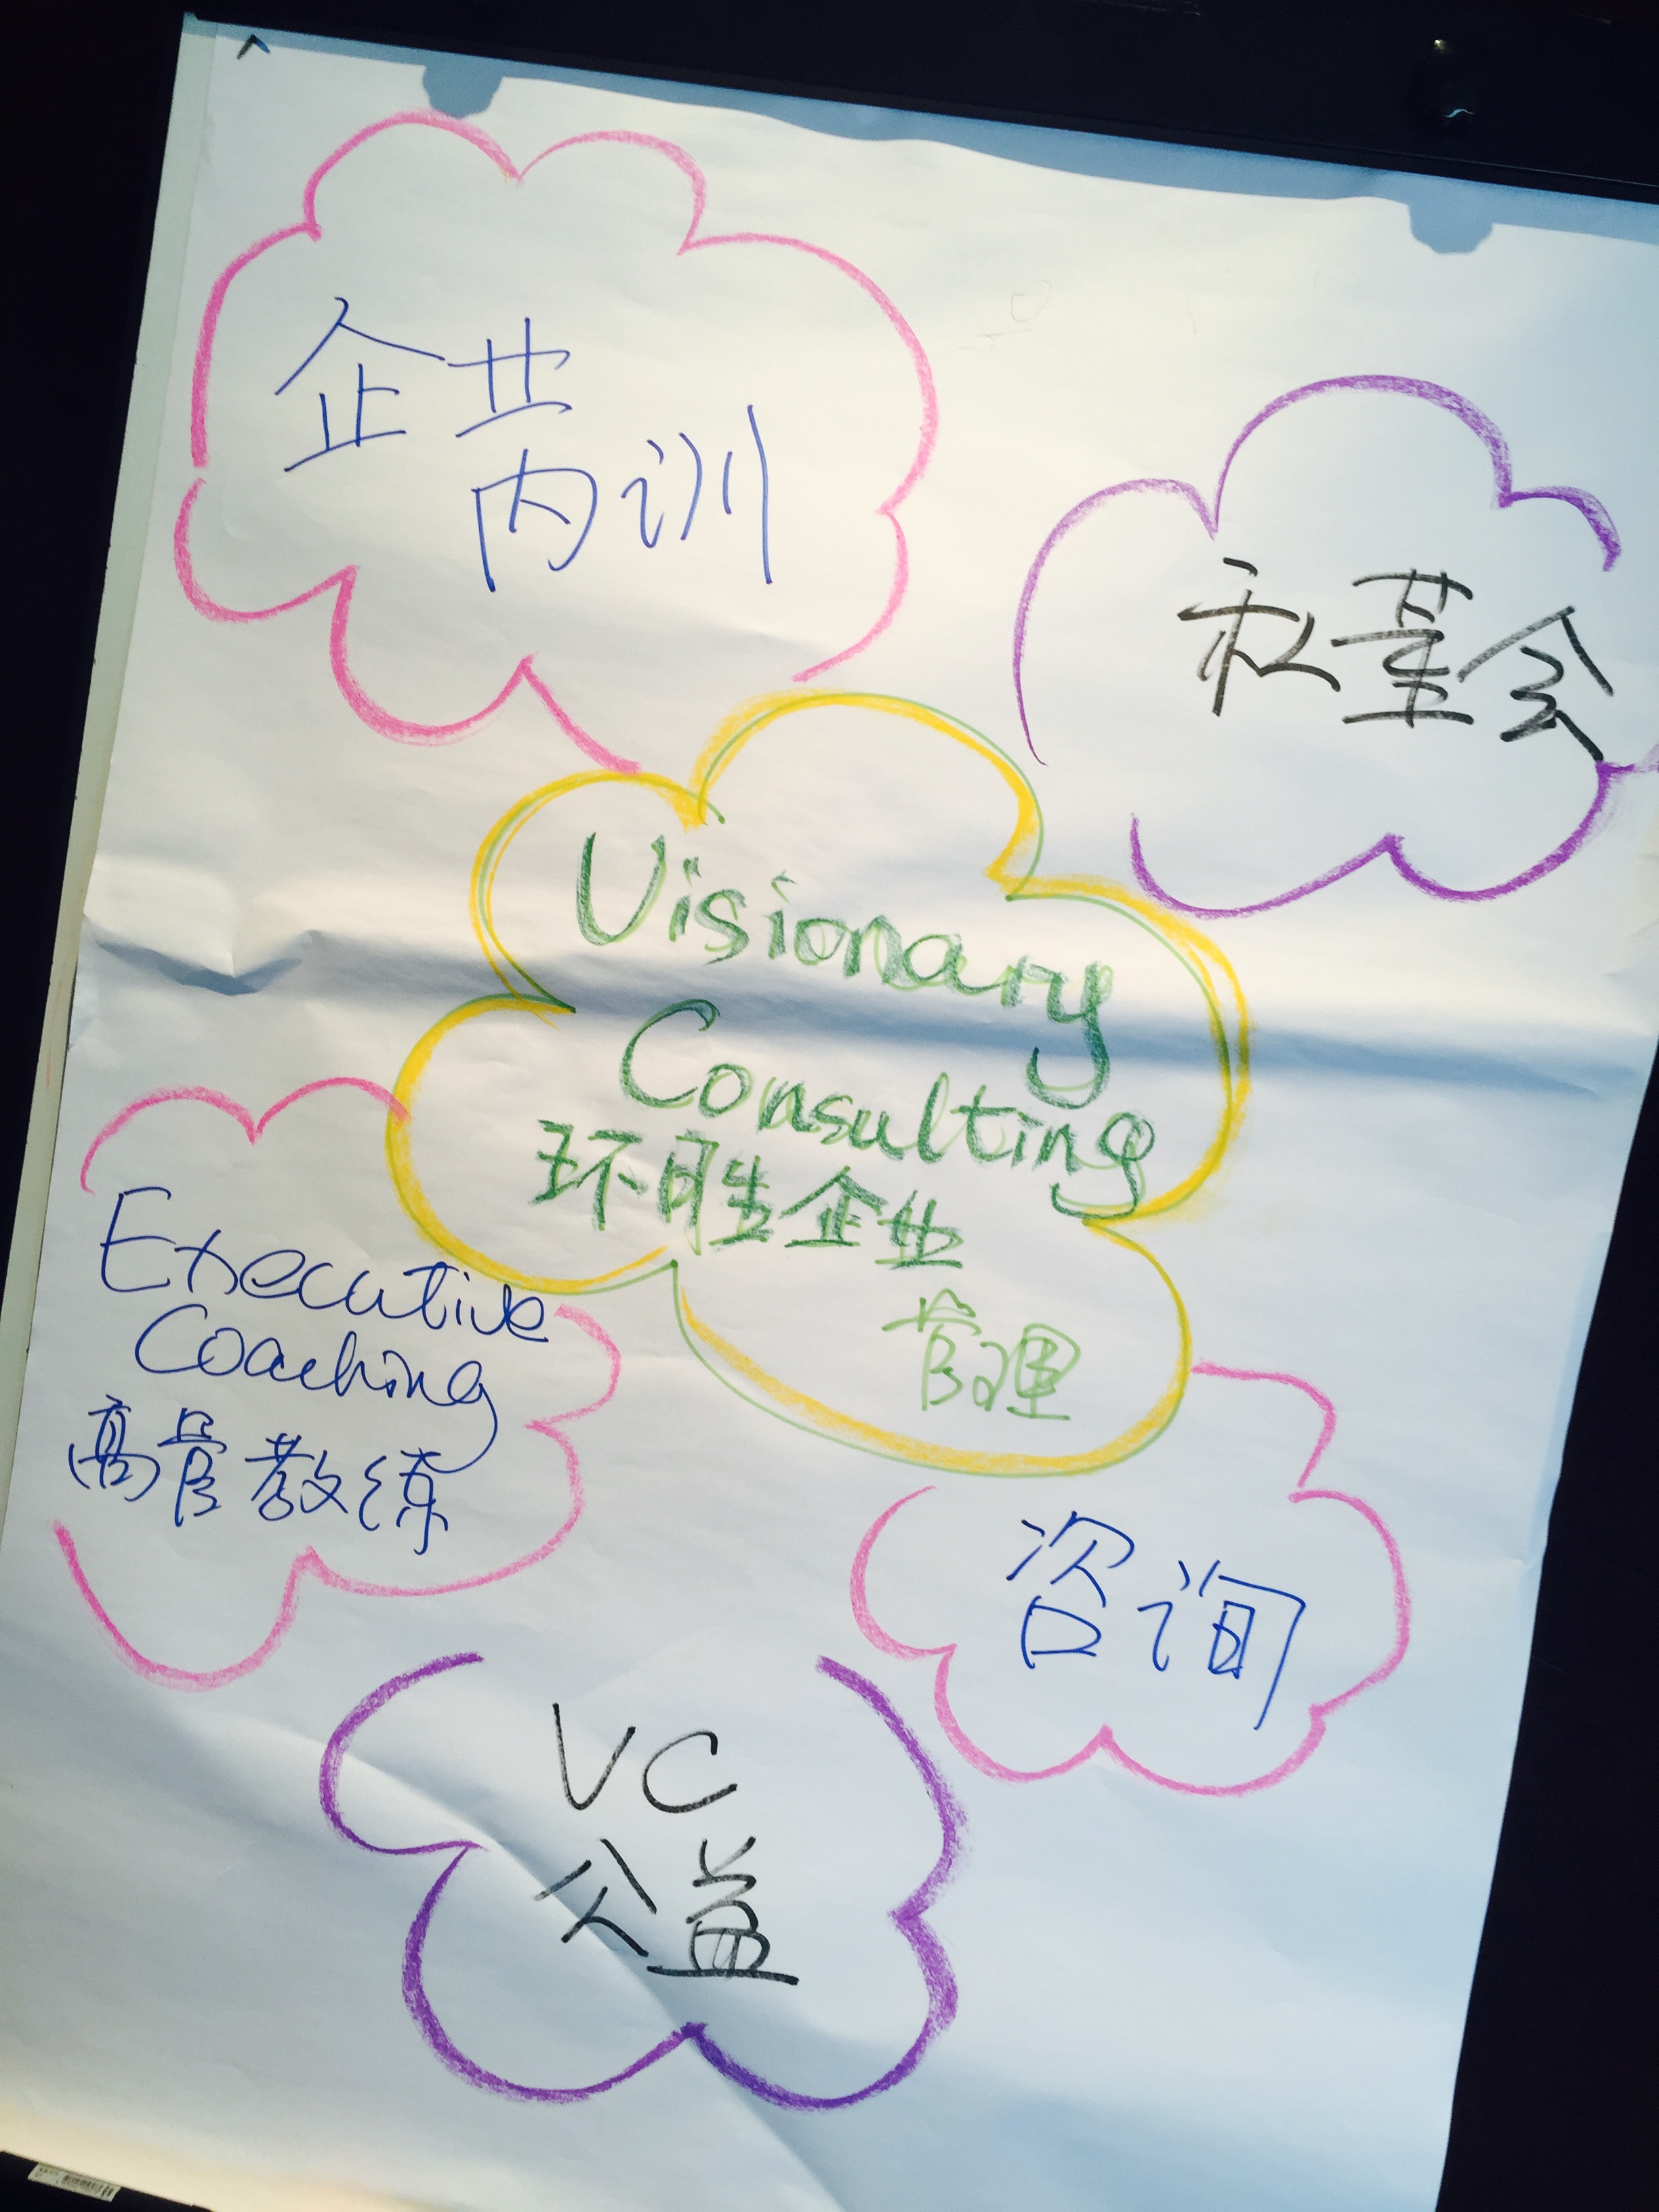 企业
内训
私董会
Visionary
Consulting
环胜企业
管理
Executive
Coaching
高管教练
咨询
VC
公益